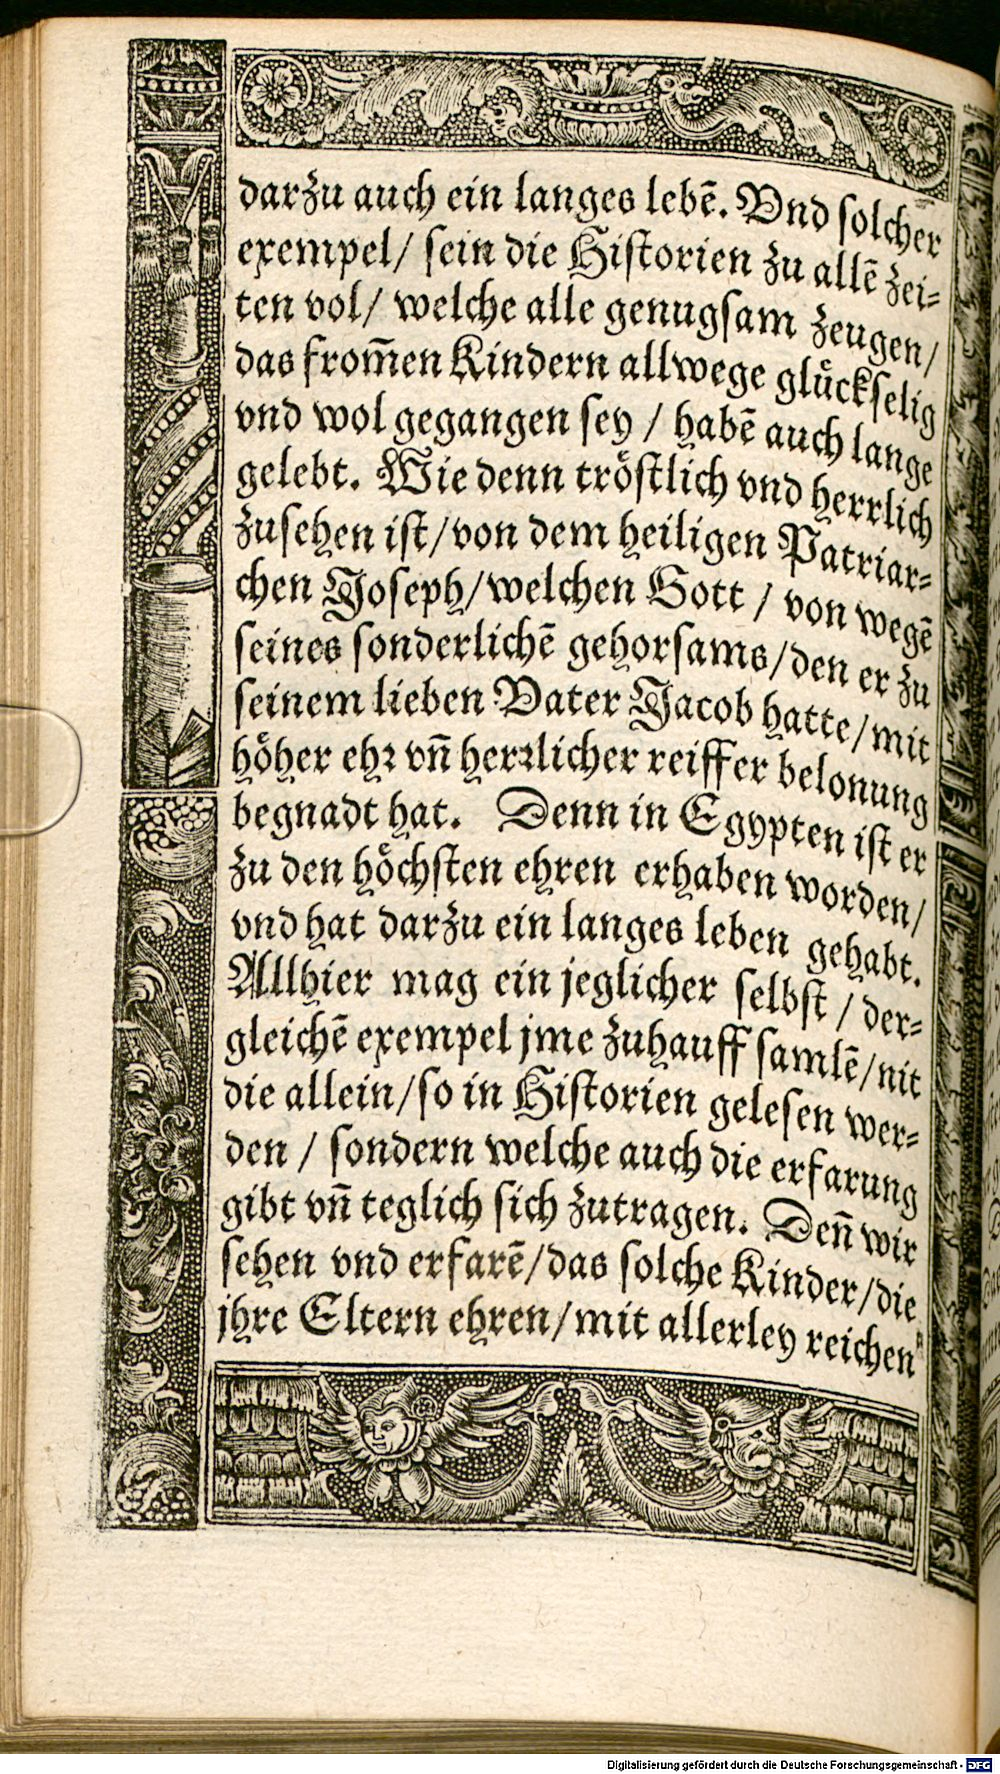 darzu auch ein langes lebē. Vnd solcher
exempel/ sein die Historien zu allē zei=
ten vol/ welche alle genugsam zeugen/
das from̄en Kindern allwege glückselig
vnd wol gegangen sey / habē auch lange
gelebt. Wie denn tröstlich vnd herrlich
zusehen ist/von dem heiligen Patriar=
chen Joseph/welchen Gott / von wegē
seines sonderlichē gehorsams/den er zu
seinem lieben Vater Jacob hatte/mit
höher ehr vn̄ herrlicher reiffer belonung
begnadt hat. Denn in Egypten ist er
zu den höchsten ehren erhaben worden/
vnd hat darzu ein langes leben gehabt.
Allhier mag ein jeglicher selbst / der=
gleichē exempel jme zuhauff samlē/nit
die allein/so in Historien gelesen wer=
den / sondern welche auch die erfarung
gibt vn̄ teglich sich zutragen. Den̄ wir
sehen vnd erfarē/das solche Kinder/die
jhre Eltern ehren/mit allerley reichen
Digitalisierung gefördert durch die Deutsche Forschungsgemeinschaft - DFG